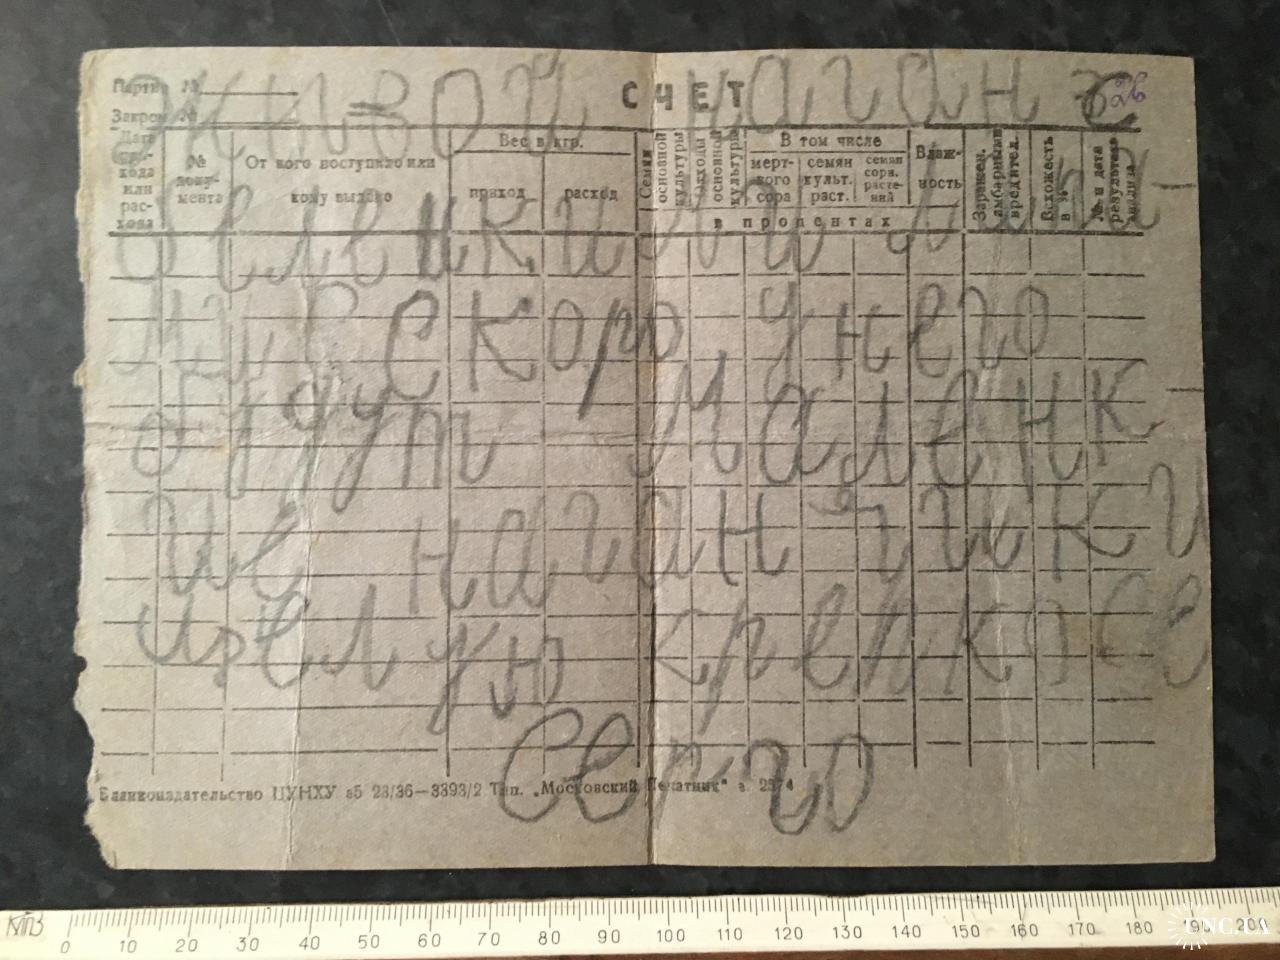 Живой наган с
Партия №
СЧЕТ
26
Закром №
Дата прихода или расхода
№ документа
От кого поступило или кому выдано
Вес в кгр.
приход
расход
Семян основной культуры
основной культуры
В том числе
мертвого сора
семян культ. раст.
семян сорн. растений
в процентах
Влажность
Заражен. амбарными вредител.
Всхожесть в %
№ и дата результата анализа
Скоро у него
будут маленк-
ие наганчики
целую крепко
Серго
Бланкоиздательство ЦУНХУ з5 23/36—3393/2 Тип. „Московский Печатник" з. 2574
КПЗ
0 10 20 30 40 50 60 70 80 90 100 110 120 130 140 150 160 170 180 190 200
UNC.UA